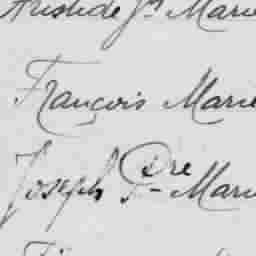 Aristide Jn Marie
François Marie
Joseph Pre Marie